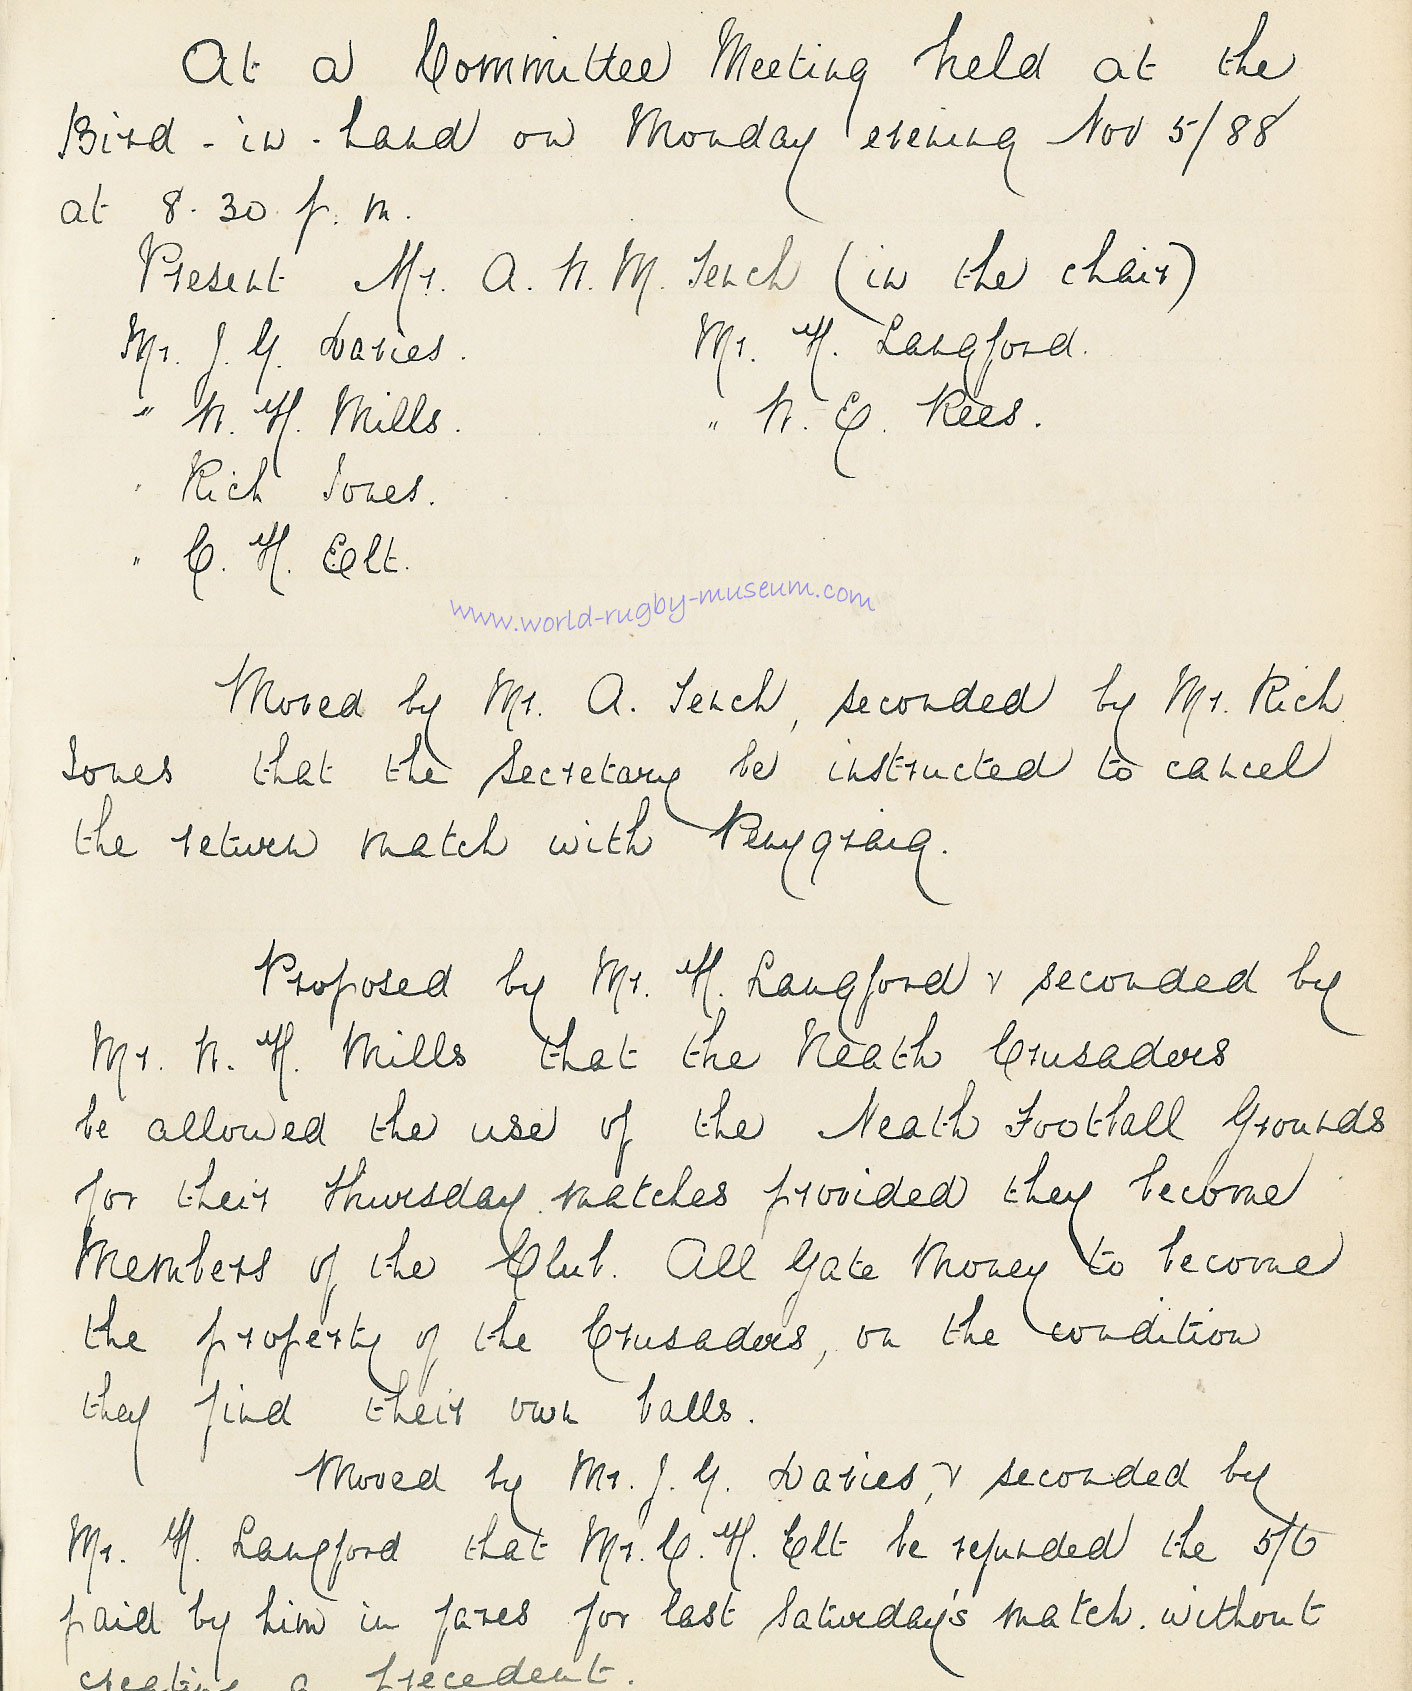 At a Committee Meeting held at the
Bird-in-hand on Monday evening Nov 5/88
at 8.30 p.m.
Present Mr. A. W. M. Tench (in the chair)
Mr. J. G. Davies. Mr. H. Langford.
" W. H. Mills. " W. E. Rees.
" Rich Jones.
" C. H. Elt.
www.world-rugby-museum.com
Moved by Mr. A. Tench, seconded by Mr. Rich
Jones that the Secretary be instructed to cancel
the return match with Penygraig.
Proposed by Mr. H. Langford & seconded by
Mr. W. H. Mills that the Neath Crusaders
be allowed the use of the Neath Football Grounds
for their Thursday matches provided they become
Members of the Club. All Gate Money to become
the property of the Crusaders, on the condition
they find their own balls.
Moved by Mr. J. G. Davies, & seconded by
Mr. H. Langford that Mr. C. H. Elt be refunded the 5/6
paid by him in fares for last Saturday's match. without
creating a precedent.